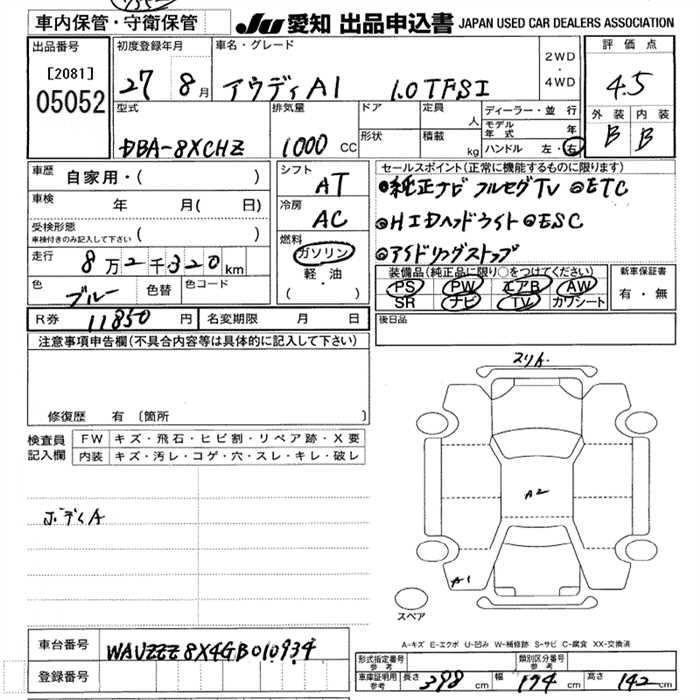 車内保管・守衛保管
JU 愛知 出品申込書 JAPAN USED CAR DEALERS ASSOCIATION
出品番号
[2081]
05052
初度登録年月
27 8月
車名・グレード
アウディA1 1.0TFSI
2WD
・
4WD
評価点
4.5
外装 内装
B B
型式
DBA-8XCHZ
排気量
1000 CC
ドア
形状
定員
人
積載
kg
ディーラー・並行
モデル年式 年
ハンドル 左・右
車歴
自家用・( )
車検
年 月( 日)
受検形態
車検付きのみ記入して下さい ( )
走行
8万2千320km
色
ブルー
色替
色コード
シフト
AT
冷房
AC
燃料
ガソリン
軽・油
( ・ )
セールスポイント(正常に機能するものに限ります)
●純正ナビ フルセグTV ◎ETC
◎HIDヘッドライト ◎ESC
◎アイドリングストップ
装備品(純正品に限り○をつけてください)
PS PW エアB AW
SR ナビ TV カワシート
新車保証書
有・無
R券 11850 円
名変期限 月 日
後日品
注意事項申告欄(不具合内容等は具体的に記入して下さい)
修復歴 有 〔箇所
検査員記入欄
FW キズ・飛石・ヒビ割・リペア跡・X要
内装 キズ・汚レ・コゲ・穴・スレ・キレ・破レ
ボディA
スリキ
A2
A1
スペア
A-キズ E-エクボ U-凹み W-補修跡 S-サビ C-腐食 XX-交換済
車台番号
WAUZZZ8X4GB010934
登録番号
形式指定番号
参考
類別区分番号
参考
車庫証明用
参考
長さ 398 cm
幅 174 cm
高さ 142 cm